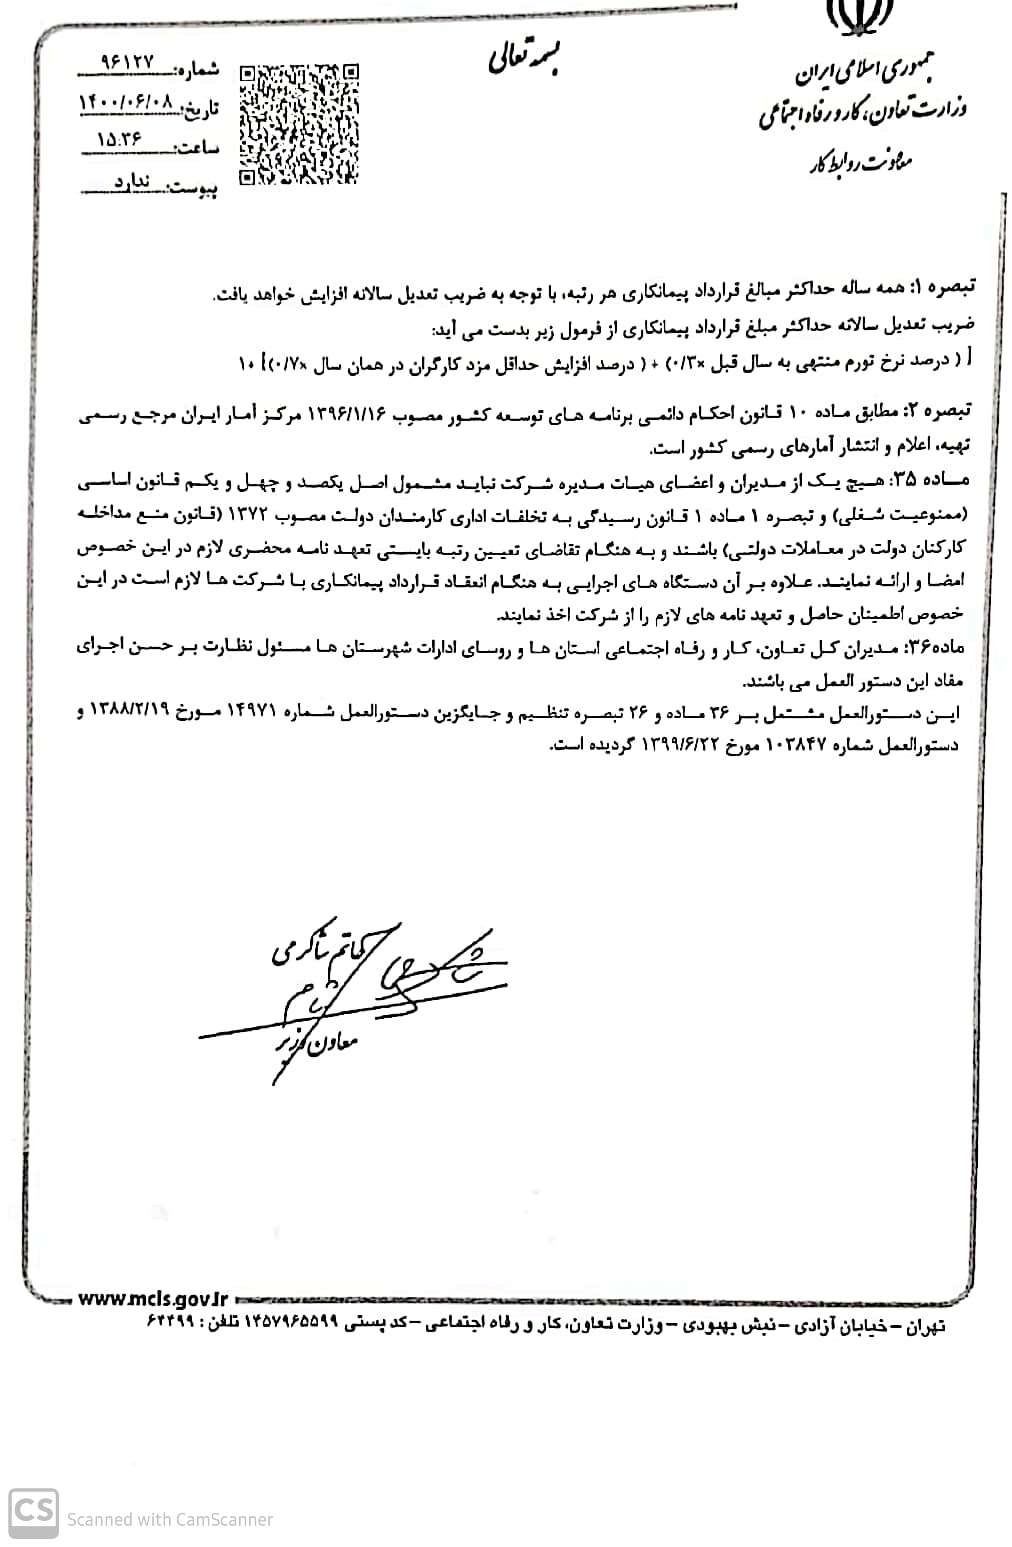 بسمه تعالی
جمهوری اسلامی ایران
وزارت تعاون، کار و رفاه اجتماعی
معاونت روابط کار
شماره: ۹۶۱۲۷
تاریخ: ۱۴۰۰/۰۶/۰۸
ساعت: ۱۵:۳۶
پیوست: ندارد
تبصره ۱: همه ساله حداکثر مبالغ قرارداد پیمانکاری هر رتبه، با توجه به ضریب تعدیل سالانه افزایش خواهد یافت.
ضریب تعدیل سالانه حداکثر مبلغ قرارداد پیمانکاری از فرمول زیر بدست می آید:
[ ( درصد نرخ تورم منتهی به سال قبل ×۰/۳) + ( درصد افزایش حداقل مزد کارگران در همان سال ×۰/۷)] +۱
تبصره ۲: مطابق ماده ۱۰ قانون احکام دائمی برنامه های توسعه کشور مصوب ۱۳۹۶/۱/۱۶ مرکز آمار ایران مرجع رسمی
تهیه، اعلام و انتشار آمارهای رسمی کشور است.
ماده ۳۵: هیچ یک از مدیران و اعضای هیات مدیره شرکت نباید مشمول اصل یکصد و چهل و یکم قانون اساسی
(ممنوعیت شغلی) و تبصره ۱ ماده ۱ قانون رسیدگی به تخلفات اداری کارمندان دولت مصوب ۱۳۷۲ (قانون منع مداخله
کارکنان دولت در معاملات دولتی) باشند و به هنگام تقاضای تعیین رتبه بایستی تعهد نامه محضری لازم در این خصوص
امضا و ارائه نمایند. علاوه بر آن دستگاه های اجرایی به هنگام انعقاد قرارداد پیمانکاری با شرکت ها لازم است در این
خصوص اطمینان حاصل و تعهد نامه های لازم را از شرکت اخذ نمایند.
ماده۳۶: مدیران کل تعاون، کار و رفاه اجتماعی استان ها و روسای ادارات شهرستان ها مسئول نظارت بر حسن اجرای
مفاد این دستور العمل می باشند.
این دستورالعمل مشتمل بر ۳۶ ماده و ۲۶ تبصره تنظیم و جایگزین دستورالعمل شماره ۱۴۹۷۱ مورخ ۱۳۸۸/۲/۱۹ و
دستورالعمل شماره ۱۰۳۸۴۷ مورخ ۱۳۹۹/۶/۲۲ گردیده است.
حاتم شاکرمی
معاون وزیر
www.mcls.gov.ir
تهران – خیابان آزادی – نبش بهبودی – وزارت تعاون، کار و رفاه اجتماعی – کد پستی ۱۴۵۷۹۶۵۵۹۹ تلفن : ۶۴۴۹۹
CS Scanned with CamScanner